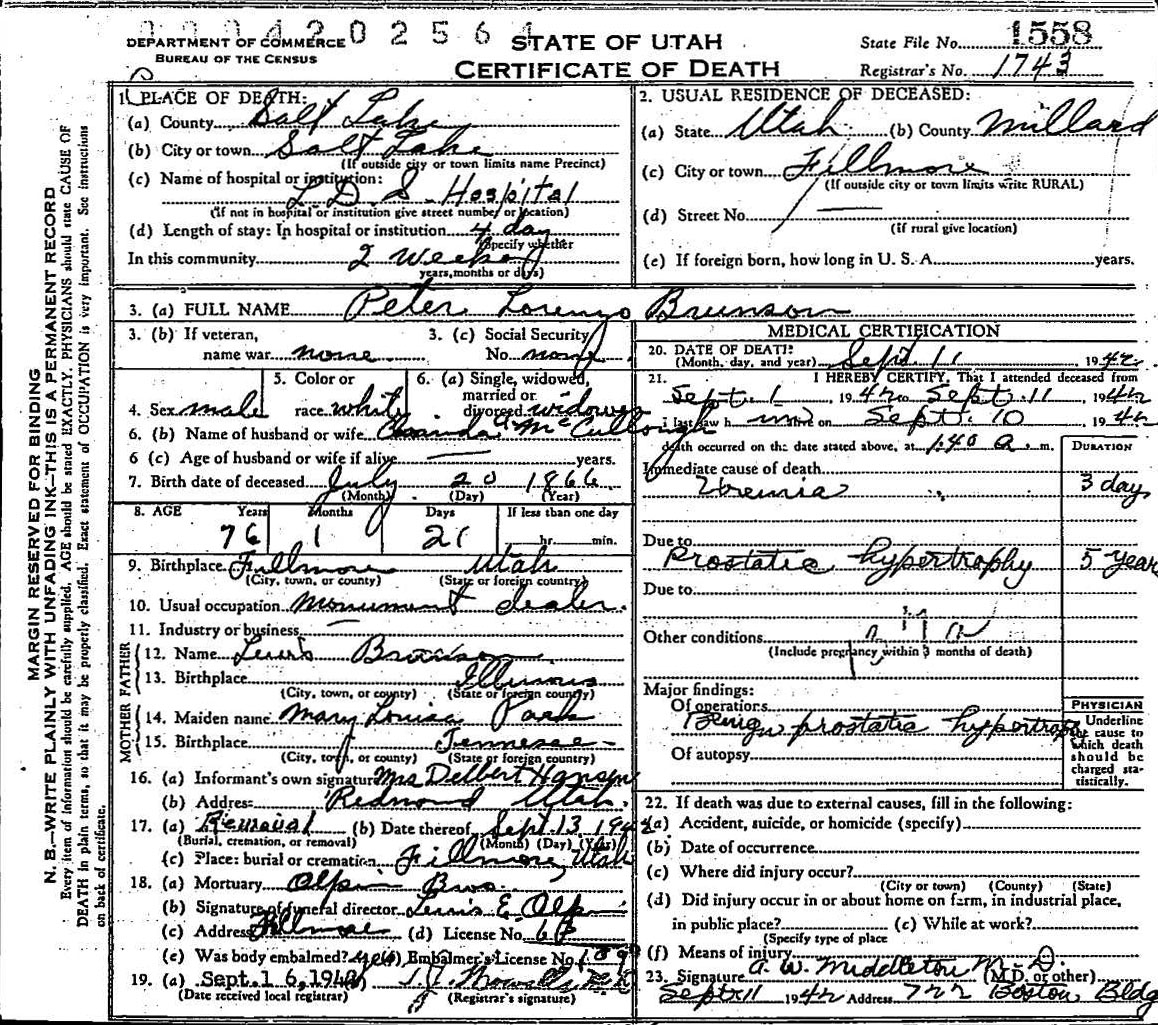 DEPARTMENT OF COMMERCE
BUREAU OF THE CENSUS
STATE OF UTAH
CERTIFICATE OF DEATH
State File No. 1558
Registrar's No. 1743
MARGIN RESERVED FOR BINDING
N. B.—WRITE PLAINLY WITH UNFADING INK—THIS IS A PERMANENT RECORD
Every item of information should be carefully supplied. AGE should be stated EXACTLY. PHYSICIANS should state CAUSE OF
DEATH in plain terms, so that it may be properly classified. Exact statement of OCCUPATION is very important. See instructions
on back of certificate.
1. PLACE OF DEATH:
(a) County Salt Lake
(b) City or town Salt Lake
(If outside city or town limits name Precinct)
(c) Name of hospital or institution:
L. D. S. Hospital
(If not in hospital or institution give street number or location)
(d) Length of stay: In hospital or institution 4 day
(Specify whether
In this community 2 Weeks
years, months or days)
2. USUAL RESIDENCE OF DECEASED:
(a) State Utah (b) County Millard
(c) City or town Fillmore
(If outside city or town limits write RURAL)
(d) Street No.
(If rural give location)
(e) If foreign born, how long in U. S. A. years.
3. (a) FULL NAME Peter Lorenzo Brunson
3. (b) If veteran, name war none
3. (c) Social Security No. none
4. Sex male
5. Color or race white
6. (a) Single, widowed, married or divorced widower
6. (b) Name of husband or wife McCullough
6 (c) Age of husband or wife if alive years.
7. Birth date of deceased July 20 1866
(Month) (Day) (Year)
8. AGE Years Months Days If less than one day
76 1 21 hr. min.
9. Birthplace Fillmore Utah
(City, town, or county) (State or foreign country)
10. Usual occupation Monument dealer
11. Industry or business
FATHER
12. Name Lewis Brunson
13. Birthplace Illinois
(City, town, or county) (State or foreign country)
MOTHER
14. Maiden name Mary Louisa
15. Birthplace Tennesee
(City, town, or county) (State or foreign country)
16. (a) Informant's own signature Mrs Delbert Hansen
(b) Address Redmond Utah
17. (a) Removal (b) Date thereof Sept. 13 1942
(Burial, cremation, or removal) (Month) (Day) (Year)
(c) Place: burial or cremation Fillmore, Utah
18. (a) Mortuary Olpin Bros.
(b) Signature of funeral director E. Olpin
(c) Address Fillmore (d) License No.
(e) Was body embalmed? yes Embalmer's License No.
19. (a) Sept. 16, 1942
(Date received local registrar) (Registrar's signature)
MEDICAL CERTIFICATION
20. DATE OF DEATH:
(Month, day, and year) Sept. 11 1942
21. I HEREBY CERTIFY, That I attended deceased from
Sept. 1, 1942 to Sept. 11, 1942
I last saw him alive on Sept. 10 1942
death occurred on the date stated above, at 1:40 a. m.
DURATION
Immediate cause of death
Uremia 3 day
Due to
Prostatic hypertrophy 5 years
Due to
Other conditions
(Include pregnancy within 3 months of death)
Major findings:
Of operations
Benign prostatic hypertrophy
Of autopsy
PHYSICIAN
Underline
the cause to
which death
should be
charged sta-
tistically.
22. If death was due to external causes, fill in the following:
(a) Accident, suicide, or homicide (specify)
(b) Date of occurrence
(c) Where did injury occur?
(City or town) (County) (State)
(d) Did injury occur in or about home on farm, in industrial place,
in public place? (e) While at work?
(Specify type of place
(f) Means of injury
23. Signature A. W. Middleton M. D.
(M.D. or other)
Sept 11 1942 Address 722 Boston Bldg